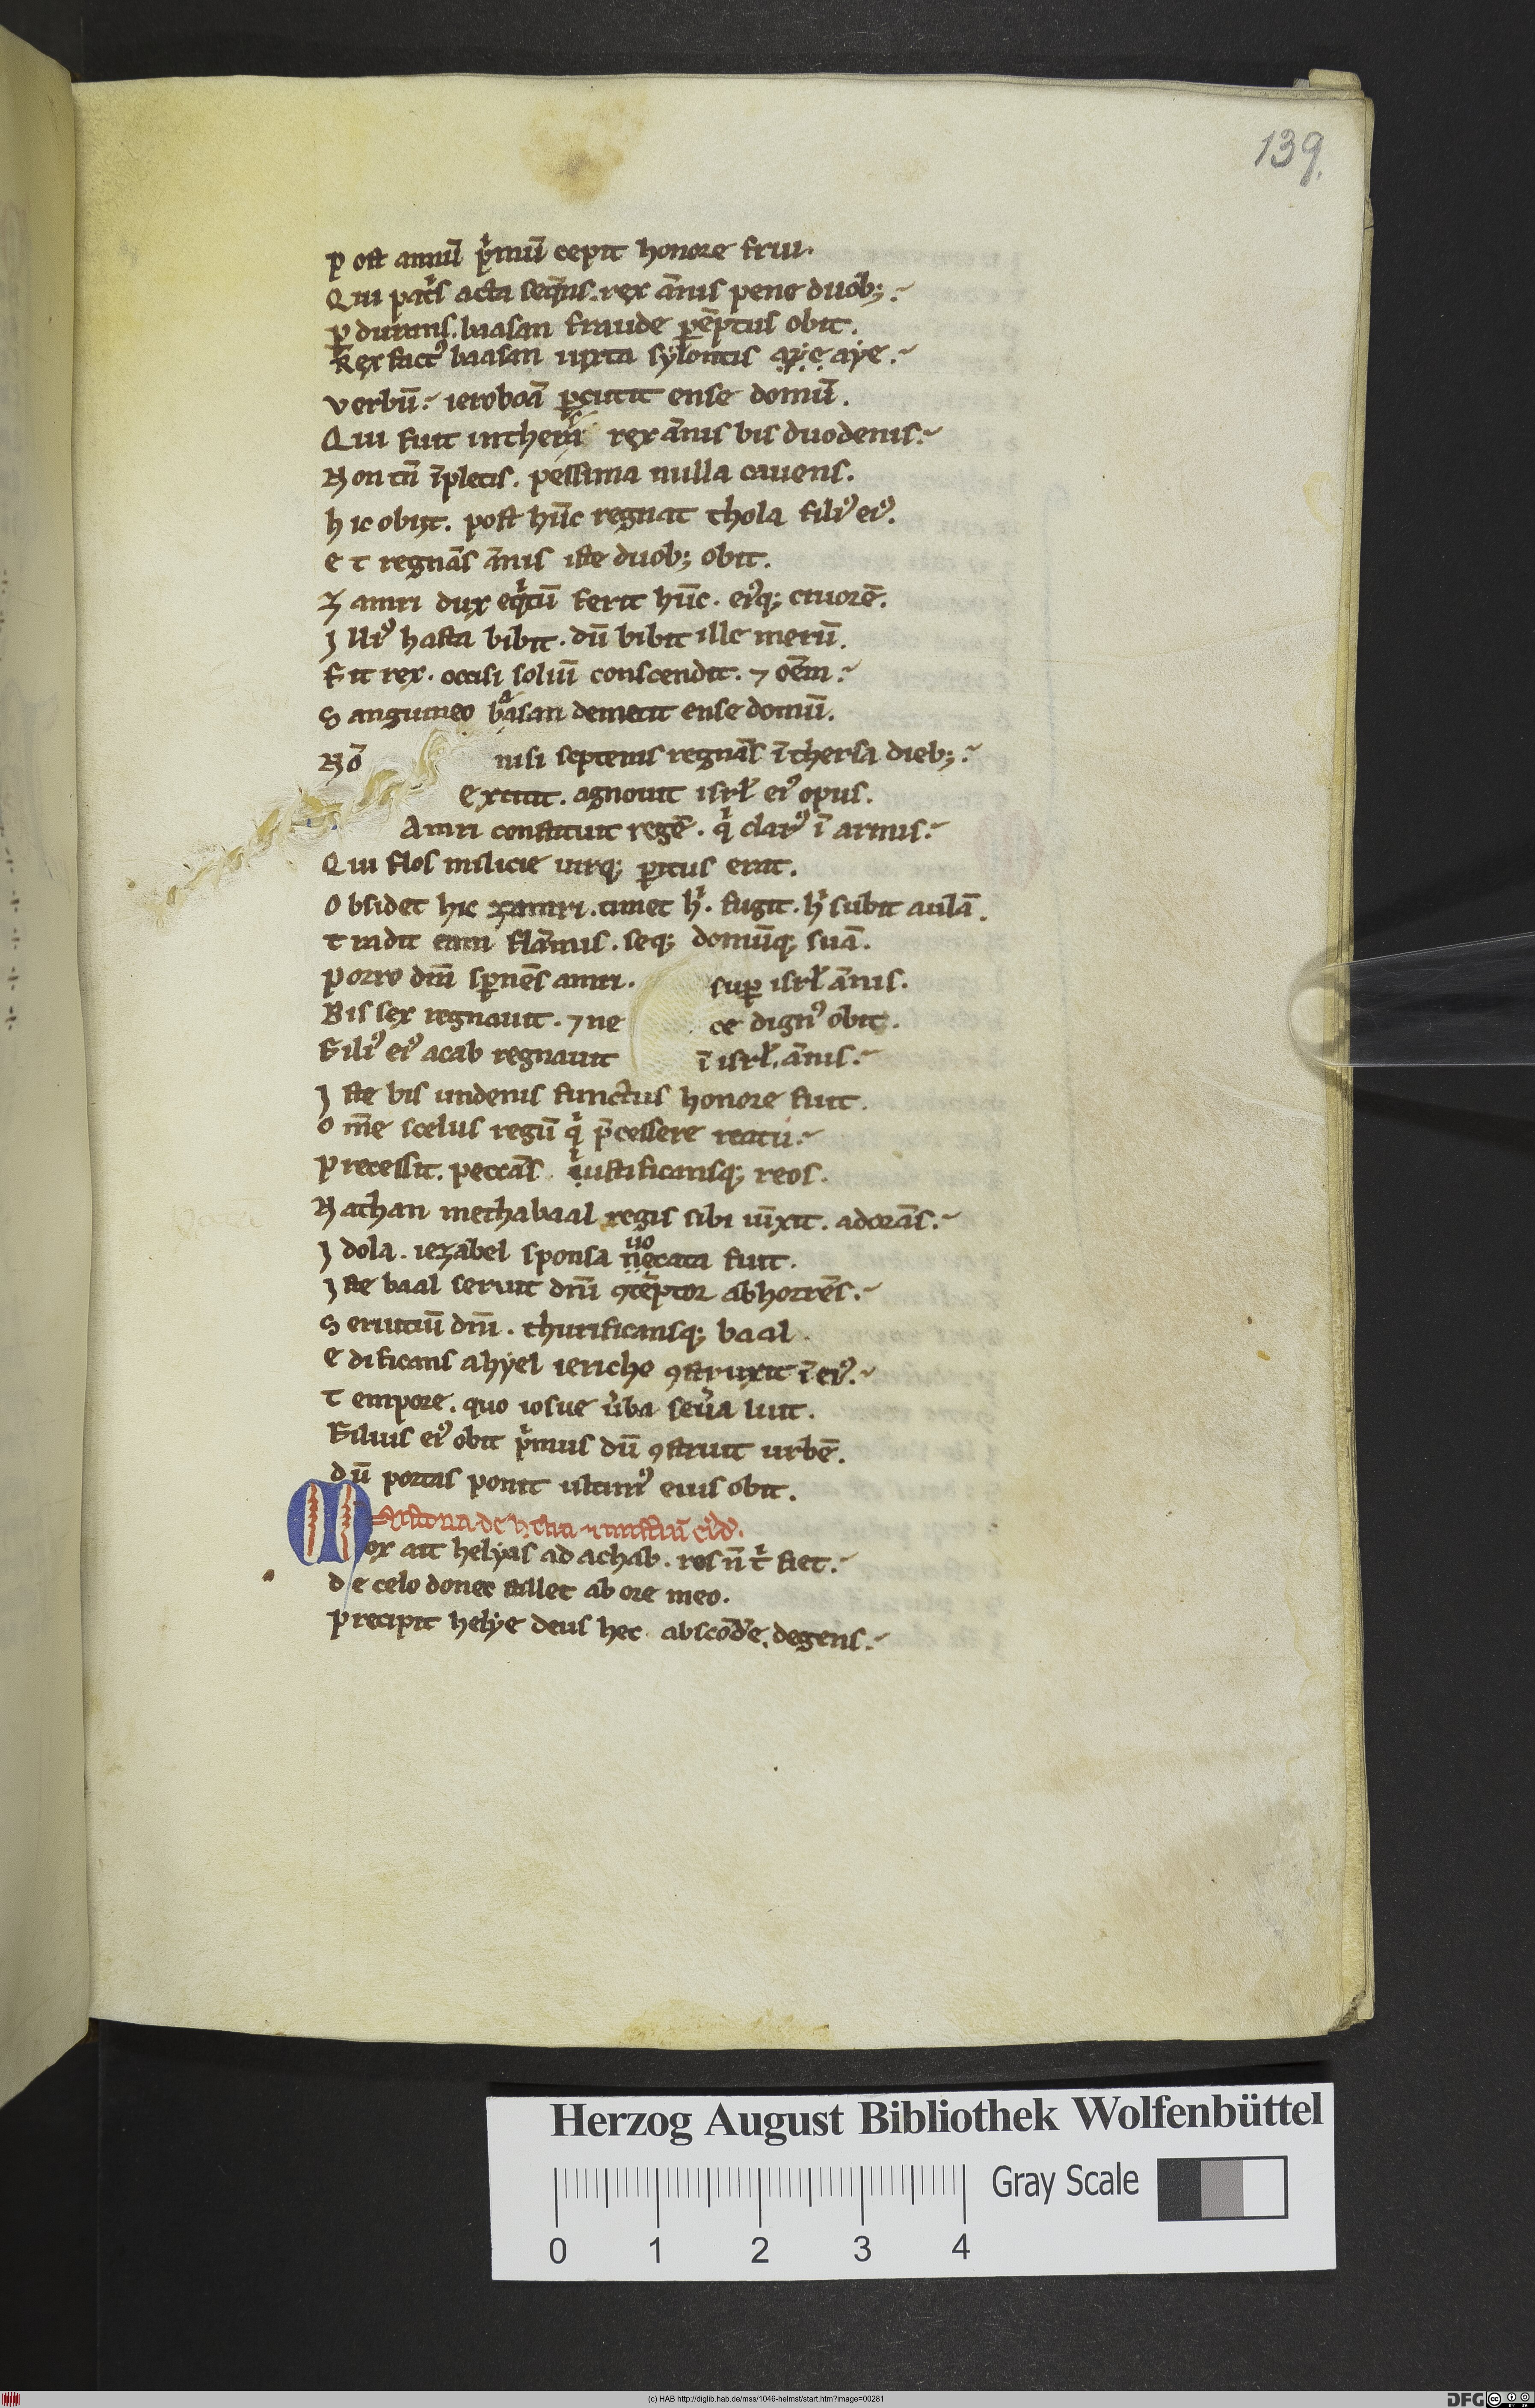 139.
p ost annū pͥmū cepit honore frui.
Qui patͥs acta seqͣns. rex ānis pene duob;
ꝑ durans. baasan fraude ꝑēptus obit.
Rex factꝰ baasan iuxta sylontis aye aye.
verbū. ieroboā ꝑcutit ense domū.
Qui fuit in thersa rex ānis bis duodenis.
Non tn̄ īpletis. pessima nulla cauens.
h ic obijt. post hūc regnat thola filiꝰ eiꝰ.
e t regnās ānis iste duob; obit.
Z amri dux eqͥtū ferit hūc. eiꝰq; cruorē.
J lliꝰ hasta bibit. dū bibit ille merū.
Fit rex. occisi soliū conscendit. ⁊ oēm.
S anguineo baasan demetit ense domū.
Nō nisi septenis regnās ī thersa dieb;
Extitit. agnouit isrł eiꝰ opus.
Amri constituit regē. qͥ clarꝰ ī armis.
Qui flos milicie uirq; ꝑitus erat.
O bsidet hic zamri. timet hͥ. fugit. hͥ subit aulā.
t radit eam flāmis. seq; domūq; suā.
Porro dm̄ sꝑnēs amri. suꝑ isrł ānis.
Bis sex regnauit. ⁊ ne ce dignꝰ obit.
Filiꝰ eiꝰ acab regnauit ī isrł. ānis.
J ste bis undenis functus honore fuit.
O m̄e scelus regū qͥ p̄cessere reatu.
Precessit. peccās iustificansq; reos.
Nathan methabaal regis sibi iūxit. adorās.
J dola. iezabel sponsa uocata fuit.
J ste baal seruit dn̄i ꝯtēptor abhorrēs.
S eruitiū dn̄i. thurificansq; baal.
E dificans ahyel iericho ꝯstruxit ī eiꝰ.
T empore. quo iosue ùba seùa luit.
Filius eiꝰ obit pͥmus dū ꝯstruit urbē.
dū portas ponit ultimꝰ eius obit.
Mox ait helyas ad achab. ros n̄ tͥ fiet.
d e celo donec stillet ab ore meo.
Precipit helye deus hec. abscōde. degens.
Herzog August Bibliothek Wolfenbüttel
Gray Scale
0 1 2 3 4
(c) HAB http://diglib.hab.de/mss/1046-helmst/start.htm?image=00281
DFG